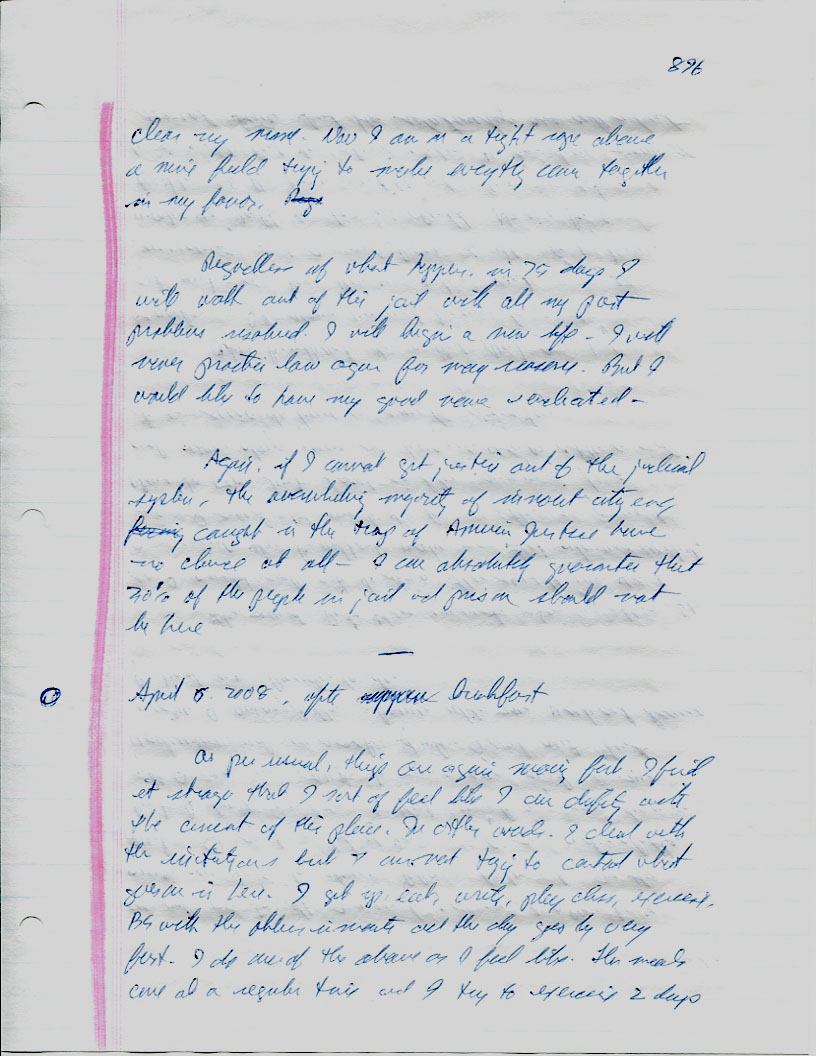 896
clear my name. Now I am on a tight rope above
a mine field trying to make everything come together
in my favor.
Regardless of what happens in 75 days I
will walk out of this jail with all my past
problems resolved I will begin a new life - I will
never practice law again for many reasons. But I
would like to have my good name vindicated -
Again, if I cannot get justice out of the judicial
system, the overwhelming majority of innocent
caught in the trap of American Justice have
no chance at all - I can absolutely guarantee that
30% of the people in jail and prison should not
be here
April 5 2008, after breakfast
As per usual, things are again moving fast. I find
it strange that I sort of feel like I am drifting with
the current of this place. In other words. I deal with
the institutions but I am not trying to control what
goes on in here. I get up, eat, write, play chess, exercise,
BS with the other inmates and the day goes by very
fast. I do one of the above as I feel like. The meals
come at a regular time and I try to exercise 2 days